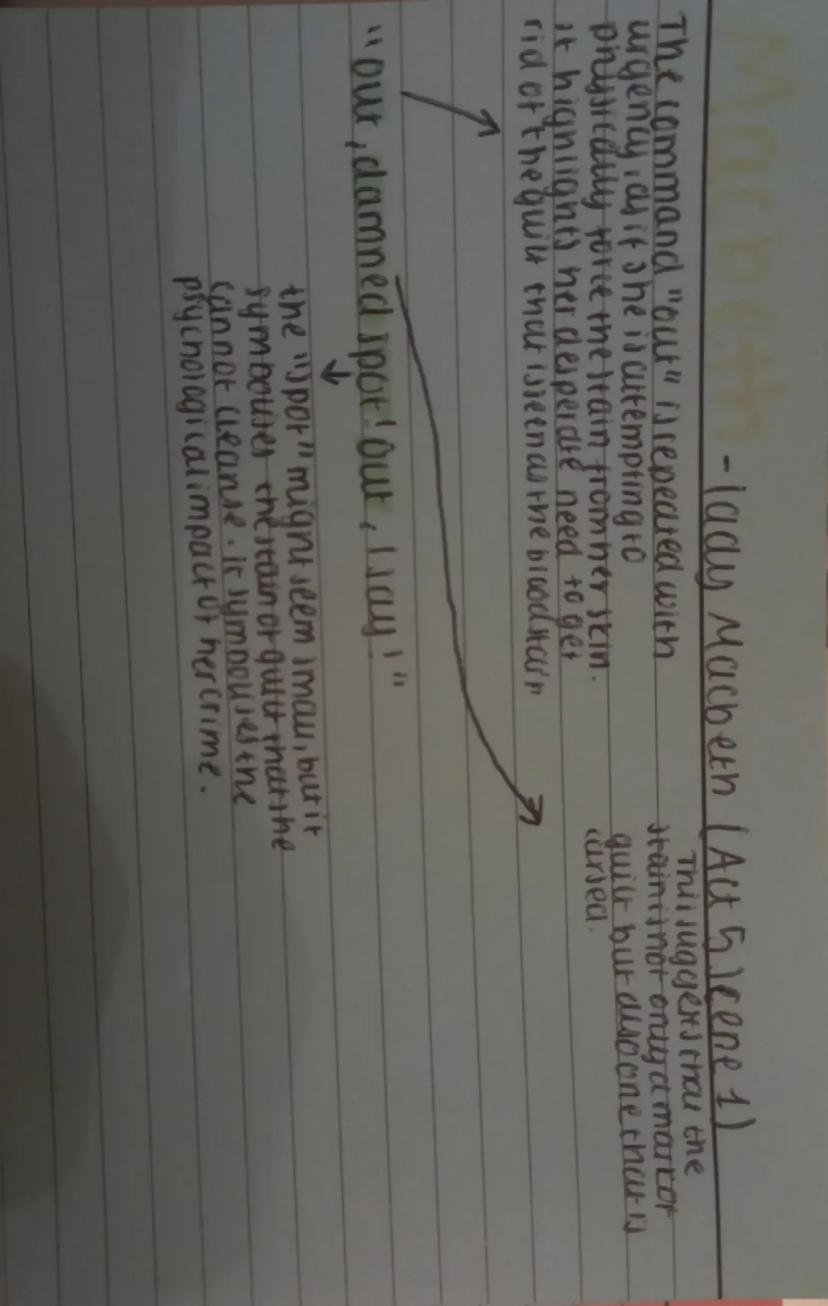 Macbeth - lady Macbeth (Act 5 scene 1)
The command "out" is repeated with
urgency, as if she is attempting to
physically force the stain from her skin.
it highlights her desperate need to get
rid of the guilt that is seen as the bloodstain
This suggests that the
stain is not only a mark of
guilt but also one that is
cursed.
"out, damned spot! out, I say!"
the "spot" might seem small, but it
symbolises the stain of guilt that she
cannot cleanse. it symbolises the
psychological impact of her crime.